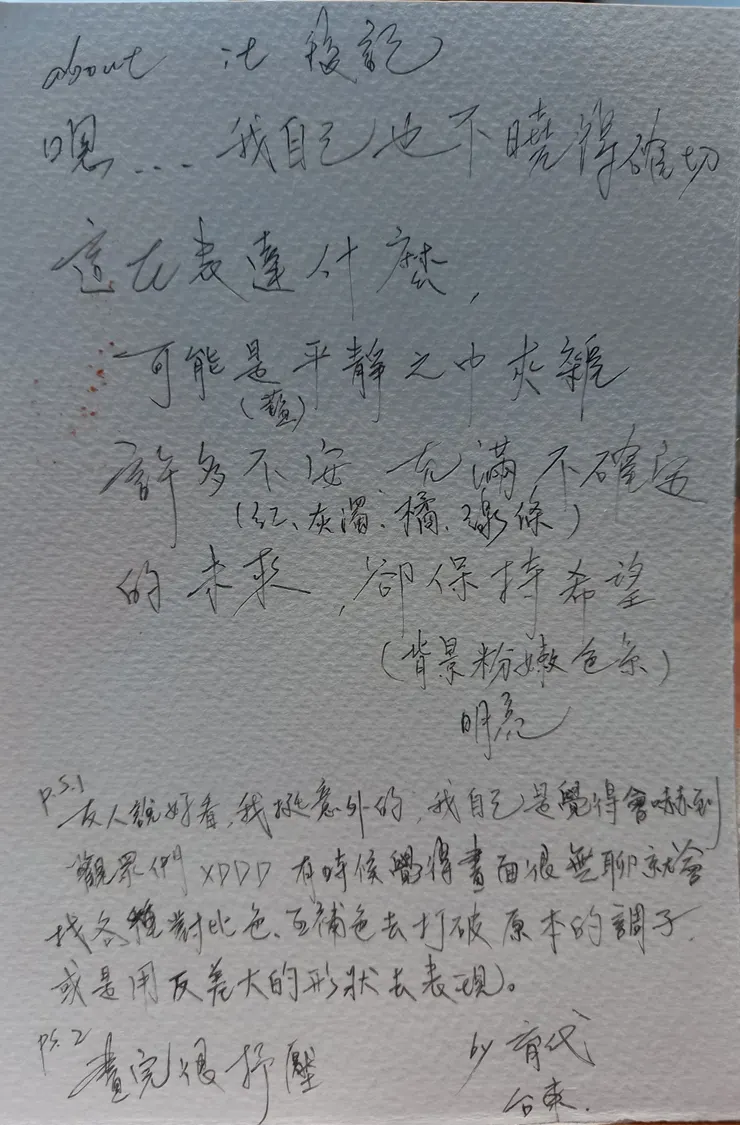 about it 後記
嗯... 我自己也不曉得確切
這在表達什麼,
可能是平靜之中夾雜
(藍)
許多不安 充滿不確定
(紅、灰濁、橘、線條)
的未來,卻保持希望
(背景粉嫩色系)
明亮
p.s.1
友人說好看,我挺意外的,我自己是覺得會嚇到
觀眾們 XDDD 有時候覺得畫面很無聊就會
找各種對比色、互補色去打破原本的調子,
或是用反差大的形狀去表現。
ps.2
畫完很抒壓
by 育代
台東.